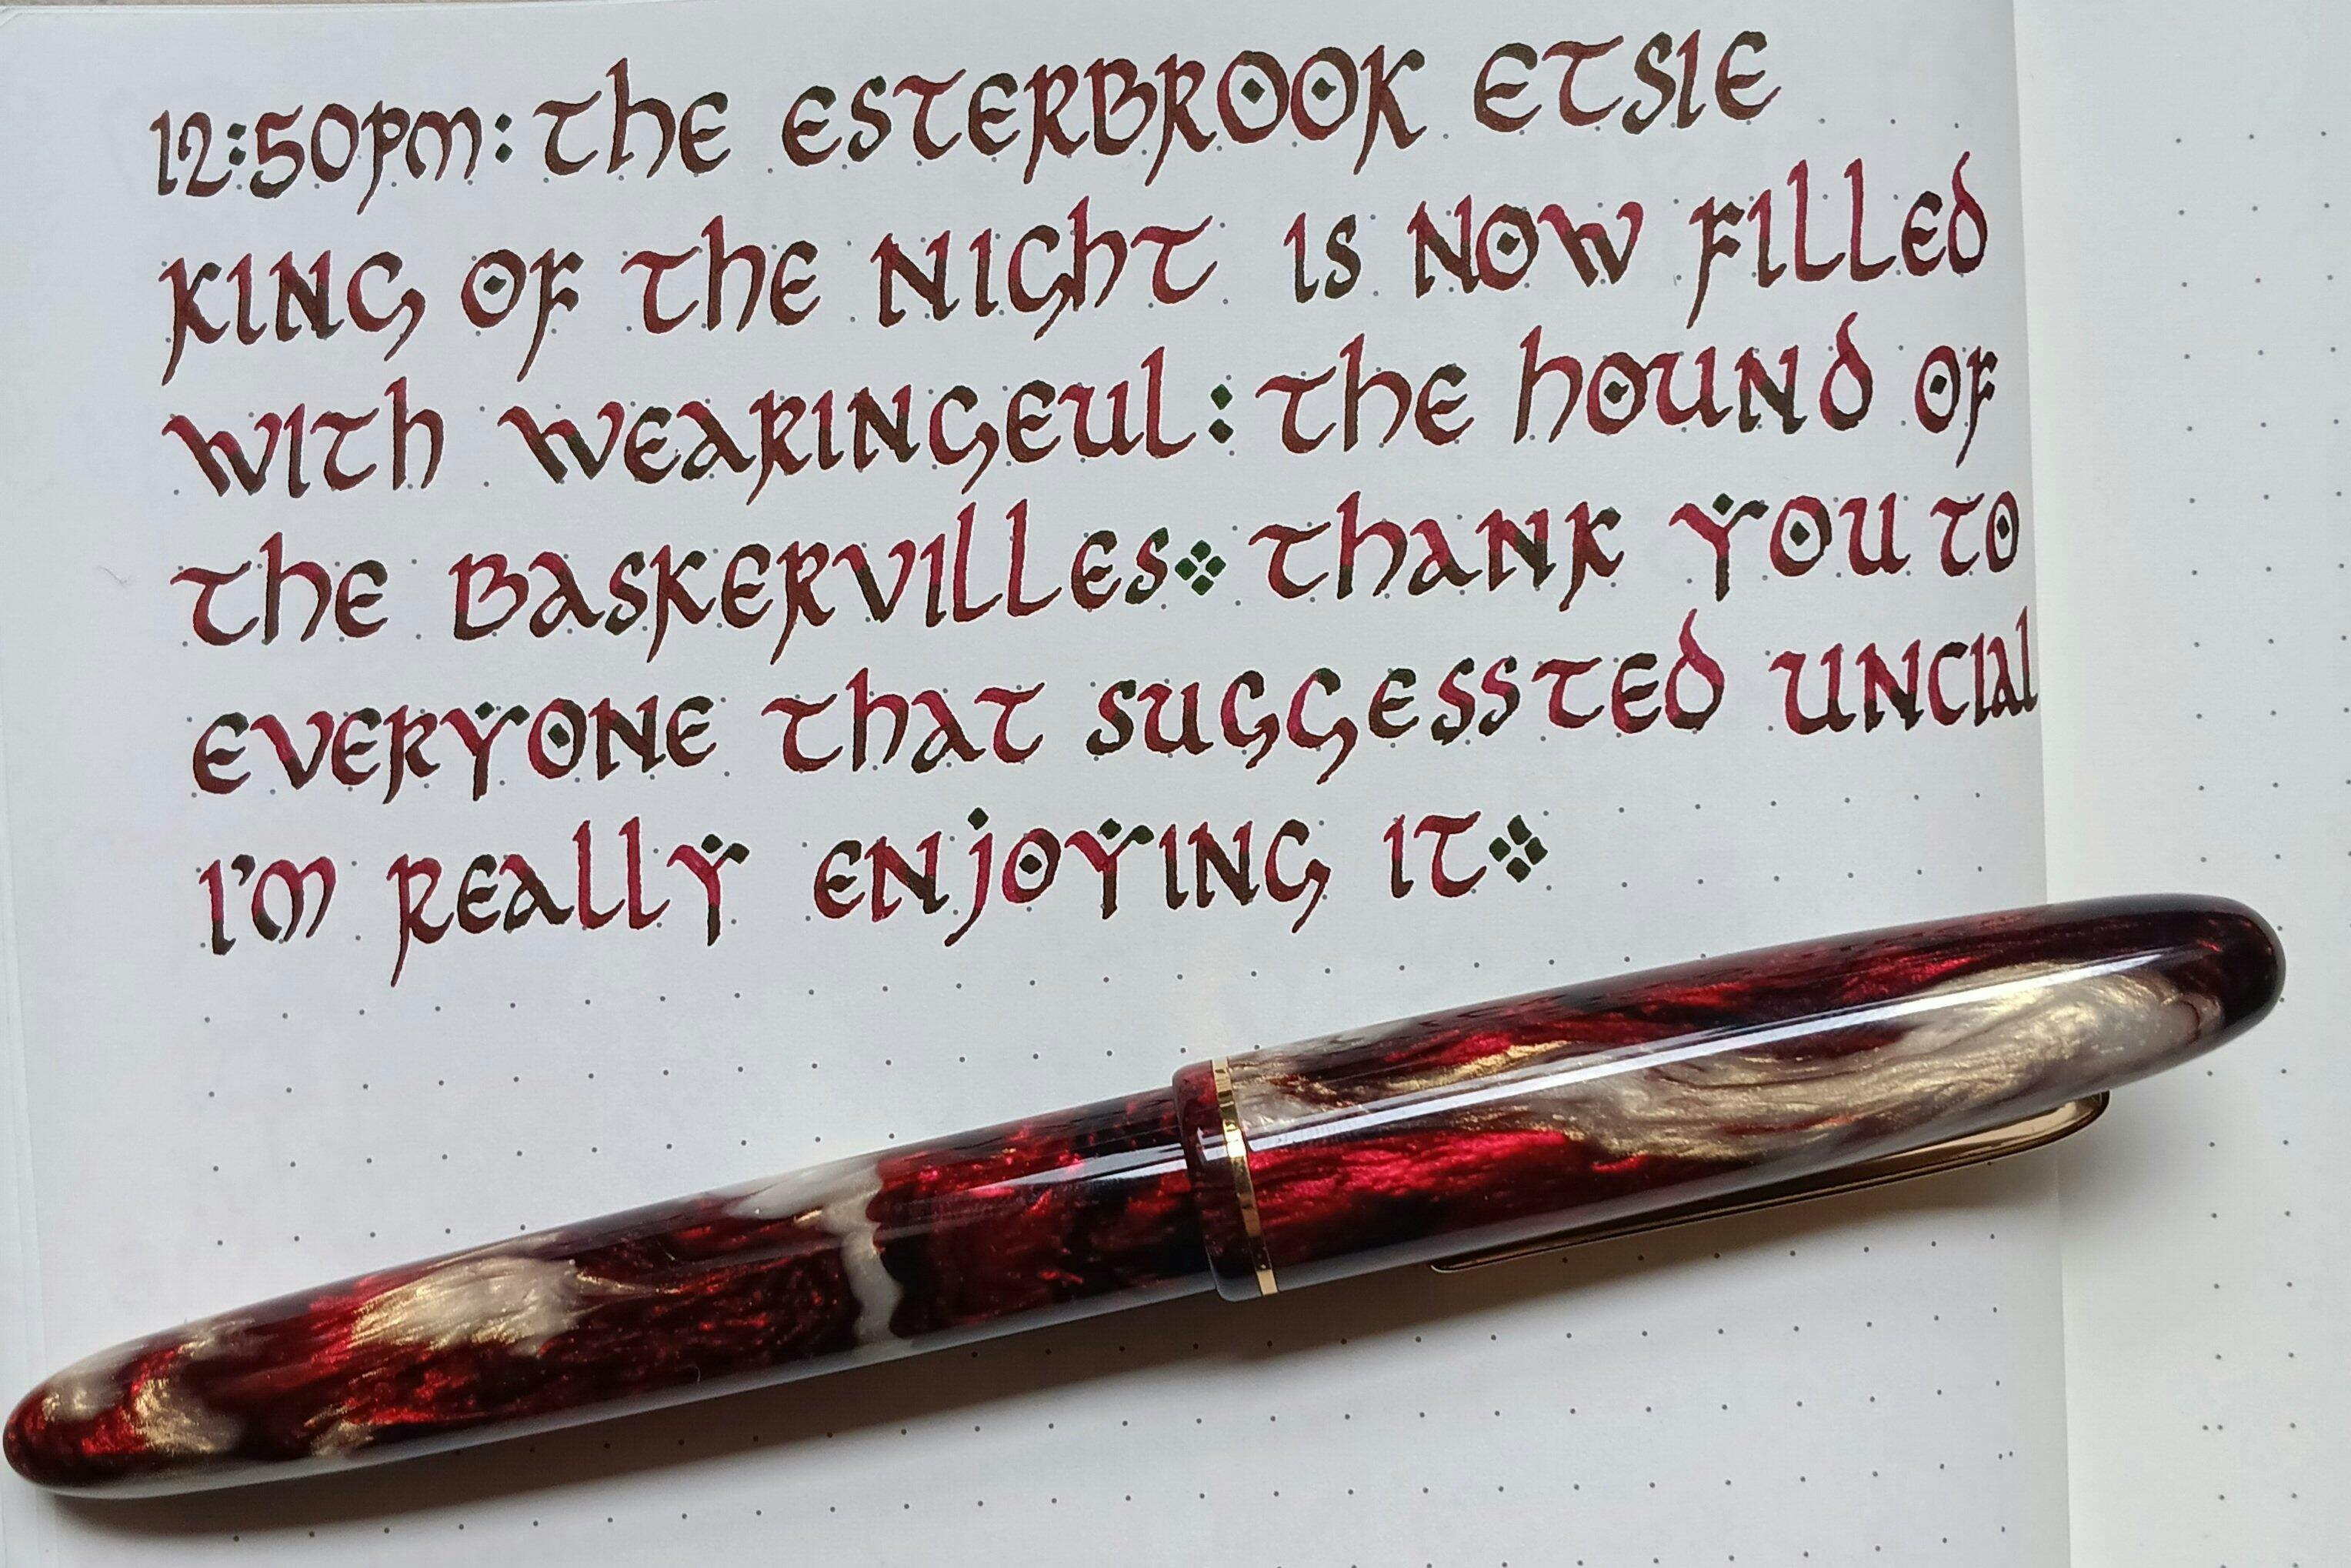 12:50PM: THE ESTERBROOK ETSIE
KING OF THE NIGHT IS NOW FILLED
WITH WEARINGEUL: THE HOUND OF
THE BASKERVILLES❖ THANK YOU TO
EVERYONE THAT SUGGESSTED UNCIAL
I'M REALLY ENJOYING IT❖